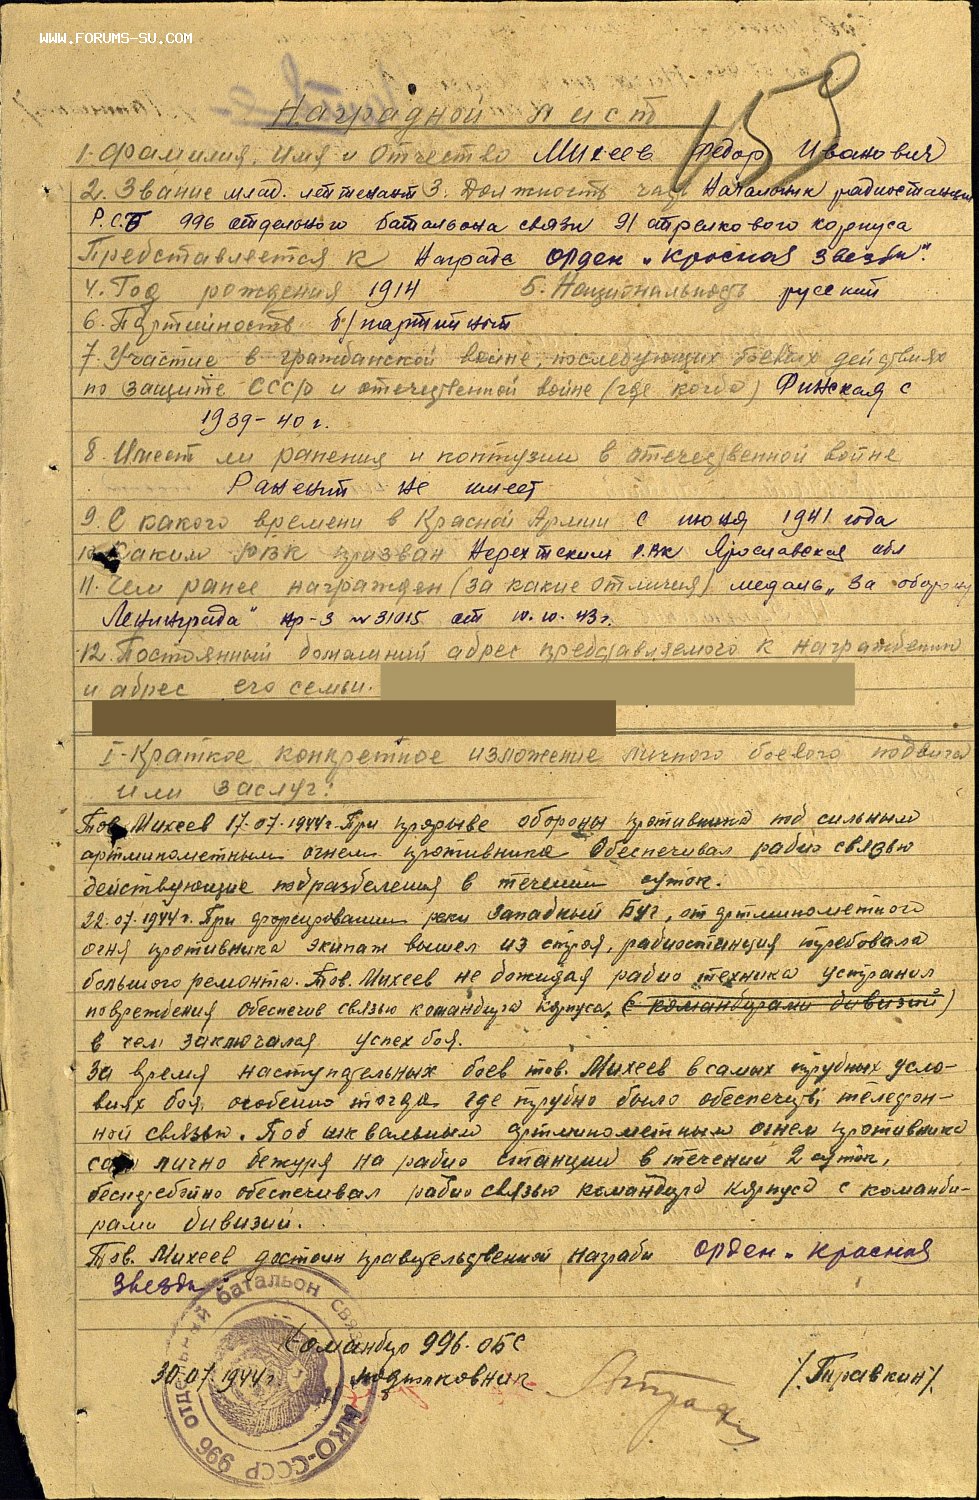 WWW.FORUMS-SU.COM
Наградной лист
1. Фамилия, Имя и Отчество Михеев Федор Иванович
2. Звание млад. лейтенант 3. Должность Начальник радиостанции
Р.С.Б 996 отдельного батальона связи 91 стрелкового корпуса
Представляется к Награде орден „Красная Звезда".
4. Год рождения 1914 5. Национальность русский
6. Партийность б/партийный
7. Участие в гражданской войне, последующих боевых действиях
по защите СССР и отечественной войне (где когда) Финская с
1939-40 г.
8. Имеет ли ранения и контузии в отечественной войне
Ранений не имеет
9. С какого времени в Красной Армии с июня 1941 года
10. Каким РВК призван Нерехтским Р.Вк Ярославская обл
11. Чем ранее награжден (за какие отличия) медаль „За оборону
Ленинграда" пр-з №31015 от 10.10.43г.
12. Постоянный домашний адрес представляемого к награждению
и адрес его семьи.
I-Краткое конкретное изложение личного боевого подвига
или заслуг:
Тов. Михеев 17.07.1944г. При прорыве обороны противника под сильным
артминометным огнем противника обеспечивал радио связью
действующие подразделения в течении суток.
22.07.1944г. При форсировании реки Западный Буг, от артминометного
огня противника экипаж вышел из строя, радиостанция требовала
большого ремонта. Тов. Михеев не дожидая радио техника устранил
повреждения обеспечив связью командира корпуса, (с командирами дивизий)
в чем заключался успех боя.
За время наступательных боев тов. Михеев в самых трудных усло-
виях боя, особенно тогда где трудно было обеспечить телефон-
ной связью. Под шквальным артминометным огнем противника
сам лично дежуря на радио станции в течений 2 суток,
бесперебойно обеспечивал радио связью командира корпуса с команди-
рами дивизий.
Тов. Михеев достоин правительственной награды орден „Красная
Звезда"
Командир 996 ОБС
30.07.1944г подполковник /Гиравкин/.
996 отдельный батальон связи НКО-СССР